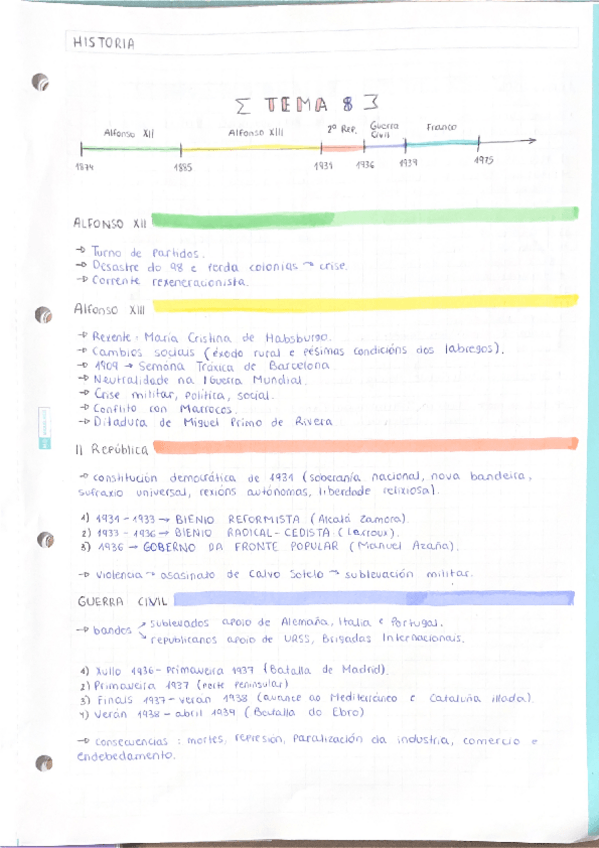 HISTORIA
TEMA 8
Alfonso XII Alfonso XIII 2º Rep. Guerra Civil Franco
1874 1885 1931 1936 1939 1975
ALFONSO XII
→ Turno de partidos.
→ Desastre do 98 e perda colonias → crise.
→ Corrente rexeneracionista.
Alfonso XIII
→ Rexente: María Cristina de Habsburgo.
→ Cambios sociais (éxodo rural e pésimas condicións dos labregos).
→ 1909 → Semana Tráxica de Barcelona
→ Neutralidade na I Guerra Mundial.
→ Crise militar, política, social.
→ Conflito con Marrocos.
→ Ditadura de Miguel Primo de Rivera
II República
→ constitución democrática de 1931 (soberanía nacional, nova bandeira,
sufraxio universal, rexións autónomas, liberdade relixiosa).
1) 1931-1933 → BIENIO REFORMISTA (Alcalá Zamora).
2) 1933-1936 → BIENIO RADICAL-CEDISTA (Lerroux).
3) 1936 → GOBERNO DA FRONTE POPULAR (Manuel Azaña).
→ violencia → asasinato de Calvo Sotelo → sublevación militar.
GUERRA CIVIL
→ bandos
sublevados apoio de Alemaña, Italia e Portugal.
republicanos apoio de URSS, Brigadas Internacionais.
1) Xullo 1936-Primavera 1937 (Batalla de Madrid).
2) Primavera 1937 (norte peninsular)
3) Finais 1937-verán 1938 (avance ao Mediterráneo e Cataluña illada).
4) Verán 1938-abril 1939 (Batalla do Ebro)
→ consecuencias: mortes, represión, paralización da industria, comercio e
endebedamento.